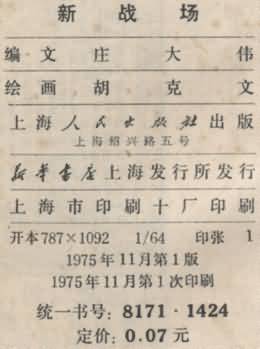 新战场
编文 庄大伟
绘画 胡克文
上海人民出版社出版
上海绍兴路五号
新华书店上海发行所发行
上海市印刷十厂印刷
开本787×1092 1/64 印张 1
1975年11月第1版
1975年11月第1次印刷
统一书号：8171·1424
定价：0.07元